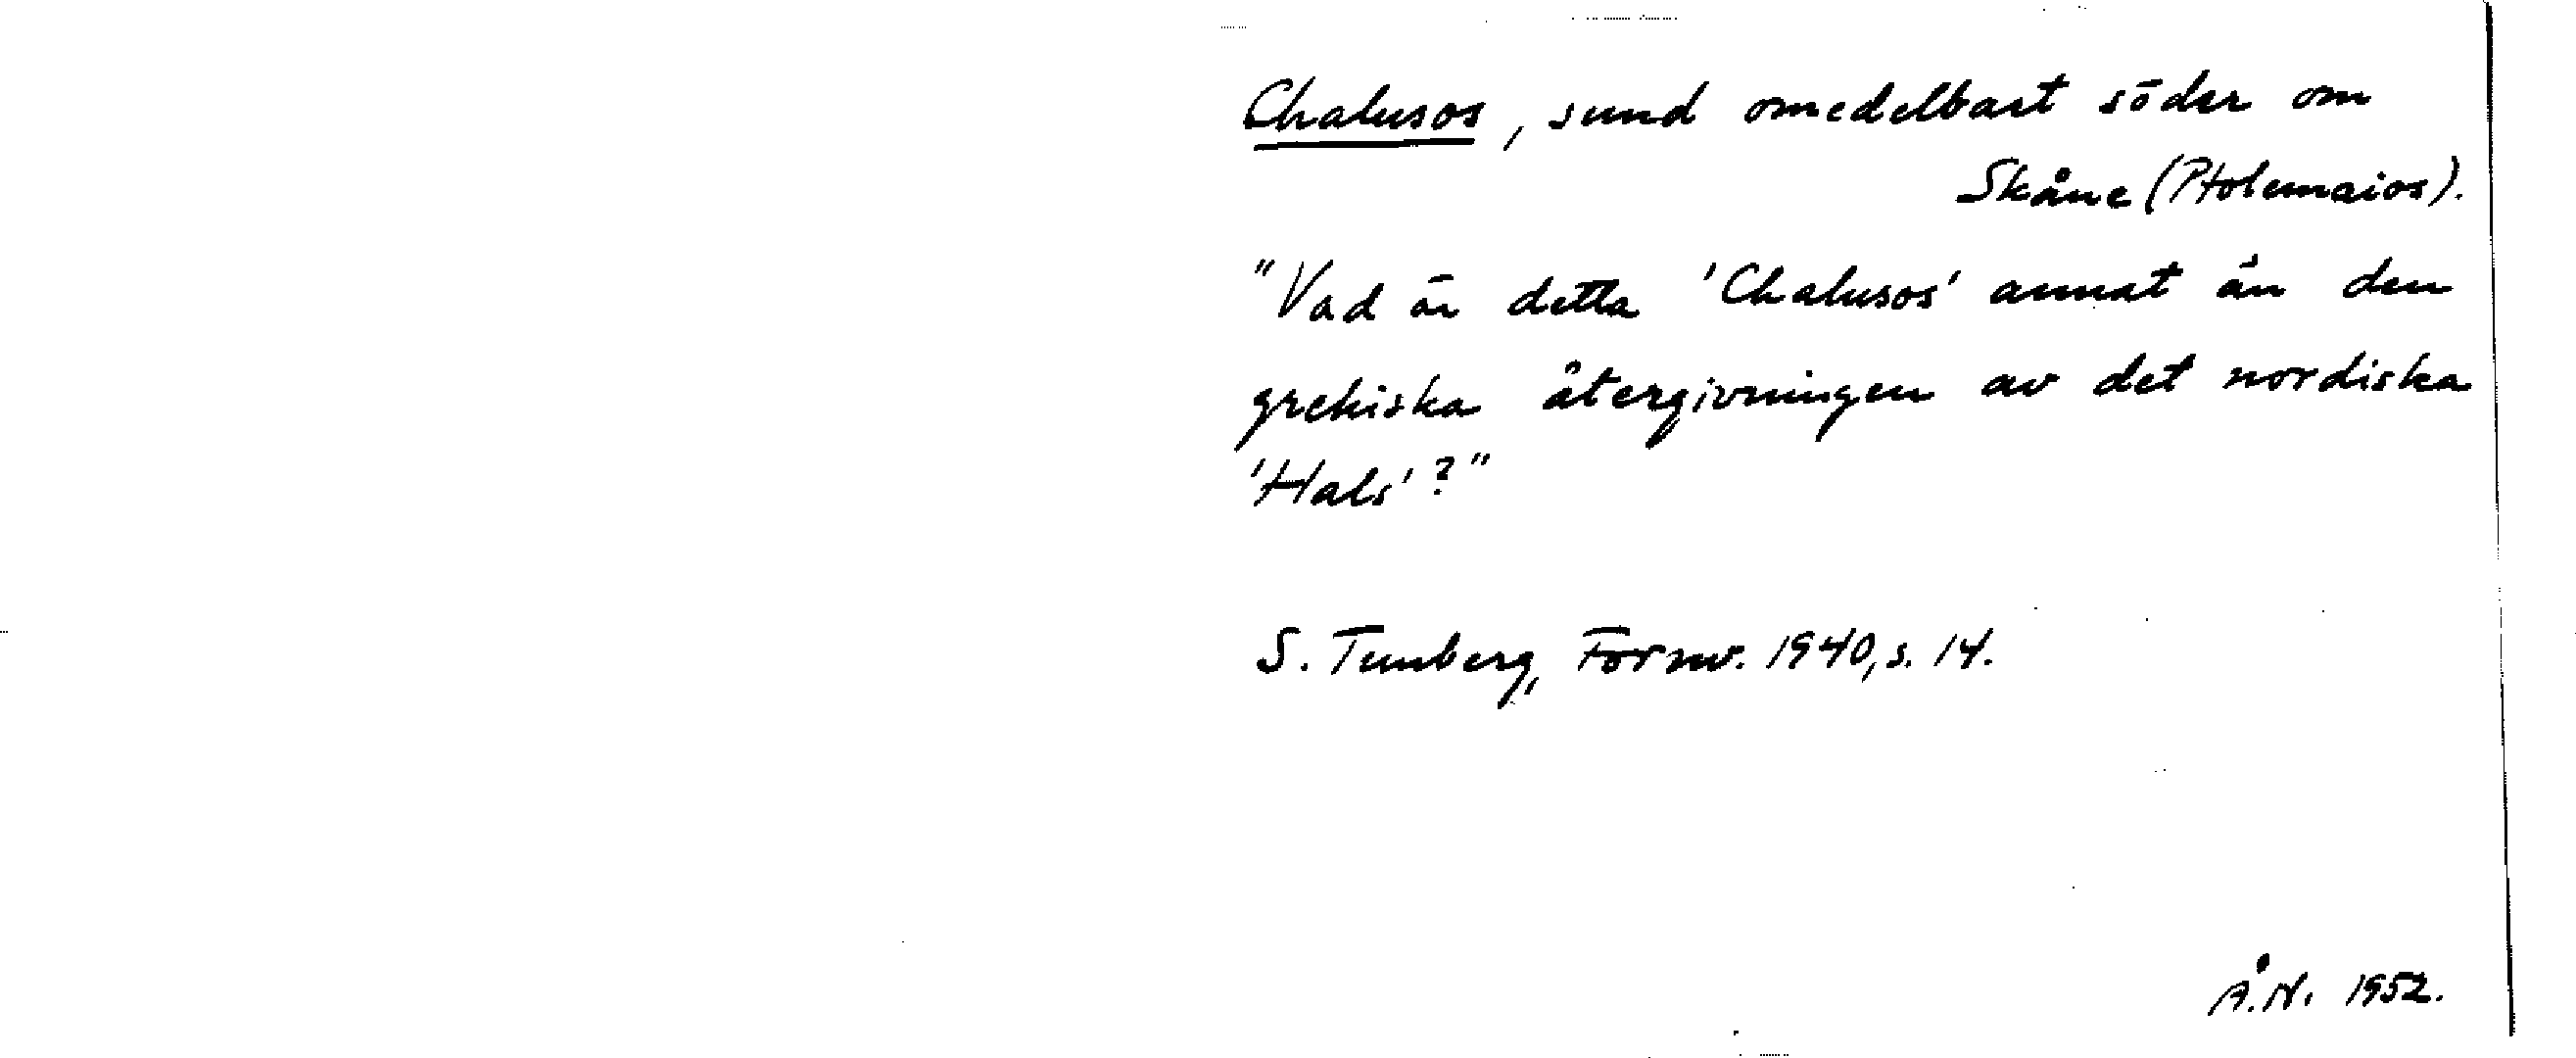 Chalusos, sund omedelbart söder om
Skåne (Ptolemaios).
"Vad är detta 'Chalusos' annat än den
grekiska återgivningen av det nordiska
'Hals'?"
S. Tunberg, Fornv. 1940, s. 14.
Å.N. 1952.